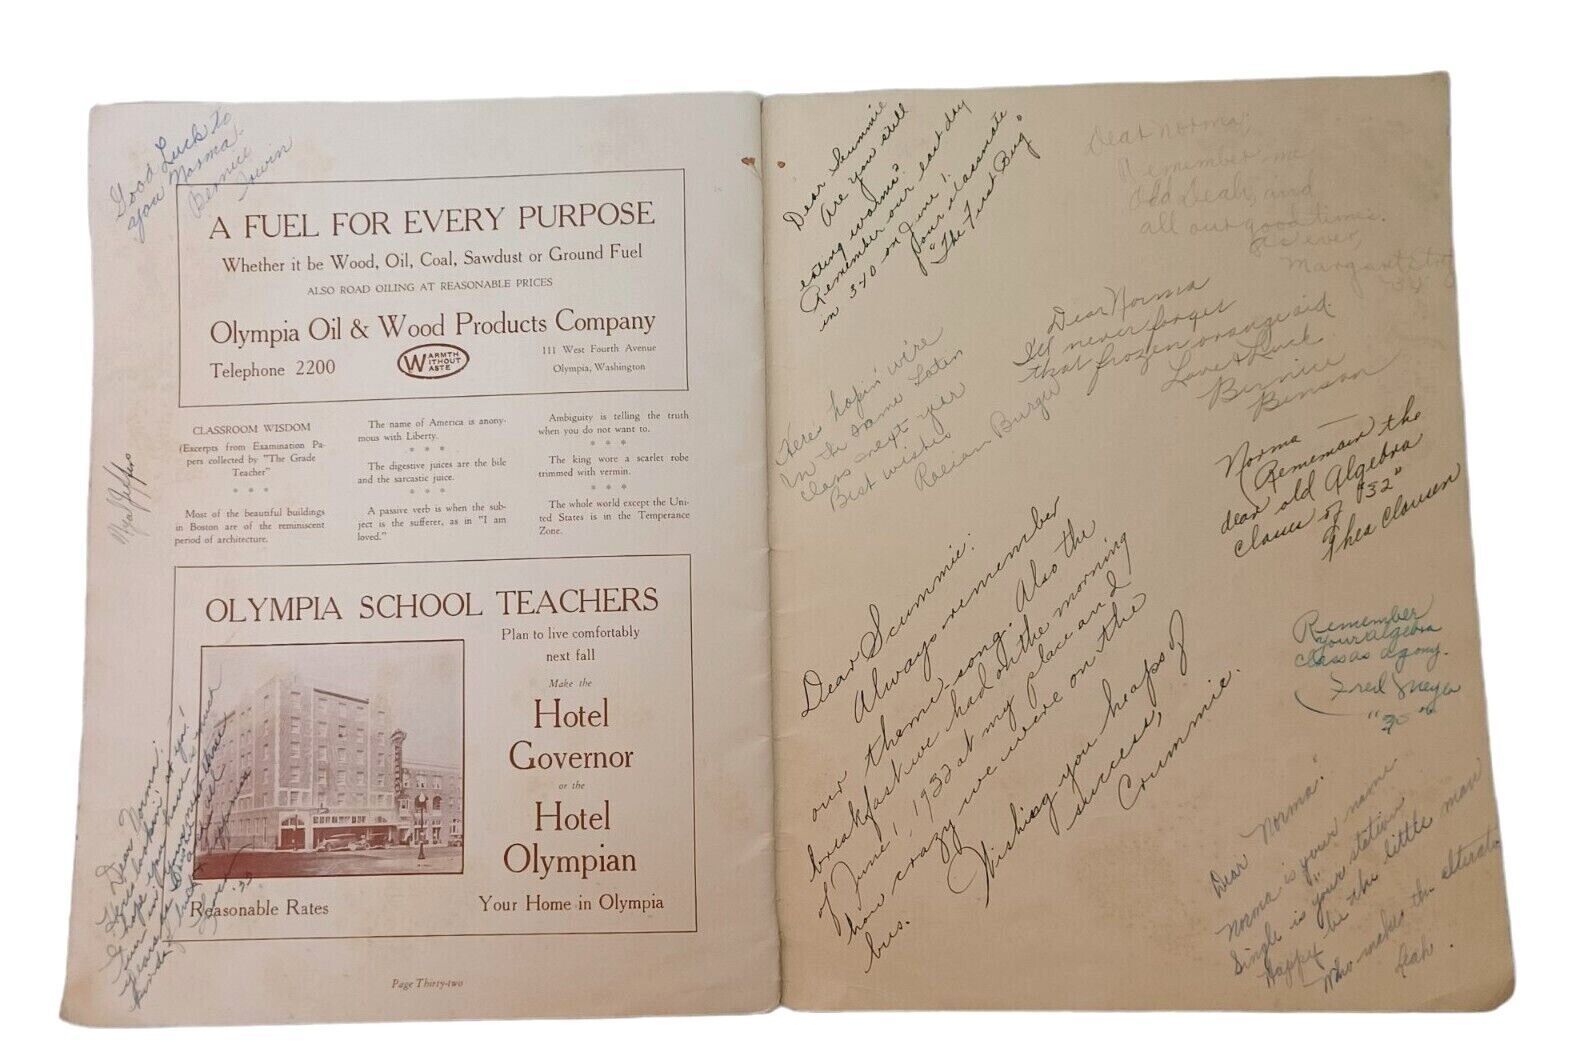 Good Luck to
you Norma.
Bernice
Irwin
A FUEL FOR EVERY PURPOSE
Whether it be Wood, Oil, Coal, Sawdust or Ground Fuel
ALSO ROAD OILING AT REASONABLE PRICES
Olympia Oil & Wood Products Company
Telephone 2200
WARMTH
WITHOUT
WASTE
111 West Fourth Avenue
Olympia, Washington
CLASSROOM WISDOM
(Excerpts from Examination Pa-
pers collected by "The Grade
Teacher"
* * *
Most of the beautiful buildings
in Boston are of the reminiscent
period of architecture.
The name of America is anony-
mous with Liberty.
* * *
The digestive juices are the bile
and the sarcastic juice.
* * *
A passive verb is when the sub-
ject is the sufferer, as in "I am
loved."
Ambiguity is telling the truth
when you do not want to.
* * *
The king wore a scarlet robe
trimmed with vermin.
* * *
The whole world except the Uni-
ted States is in the Temperance
Zone.
OLYMPIA SCHOOL TEACHERS
Plan to live comfortably
next fall
Make the
Hotel
Governor
or the
Hotel
Olympian
Reasonable Rates
Your Home in Olympia
Dear Norma:
Here's lookin' at you!
I hope you have a
fun in
years
kinds of luck
'33
Page Thirty-two
Dear Scummie
Are you still
eating worms?
Remember our last day
in 340 on June 1.
Your classmate
"The First Bug"
Dear Norma;
Remember me
Old Deah, and
all our good times.
As ever,
Margaret
Dear Norma
I'll never forget
that frozen orangeaid.
Love & Luck
Bernice
Benson
Here's hopin' we're
in the same Latin
class next year
Best wishes
Norma —
Rememain the
dear old Algebra
Classes of "32"
Thea Clausen
Dear Scummie:
Always remember
our theme-song. Also the
breakfast we had on the morning
of June 1, 1932 at my place and
how crazy we were on the
bus.
Wishing you heaps of
success,
Crummie.
Remember
your algebra
class as agony.
Fred Meyer
Dear Norma:
Norma is your name.
Single is your station
Happy be the little man
Who makes the alterat
Leah.